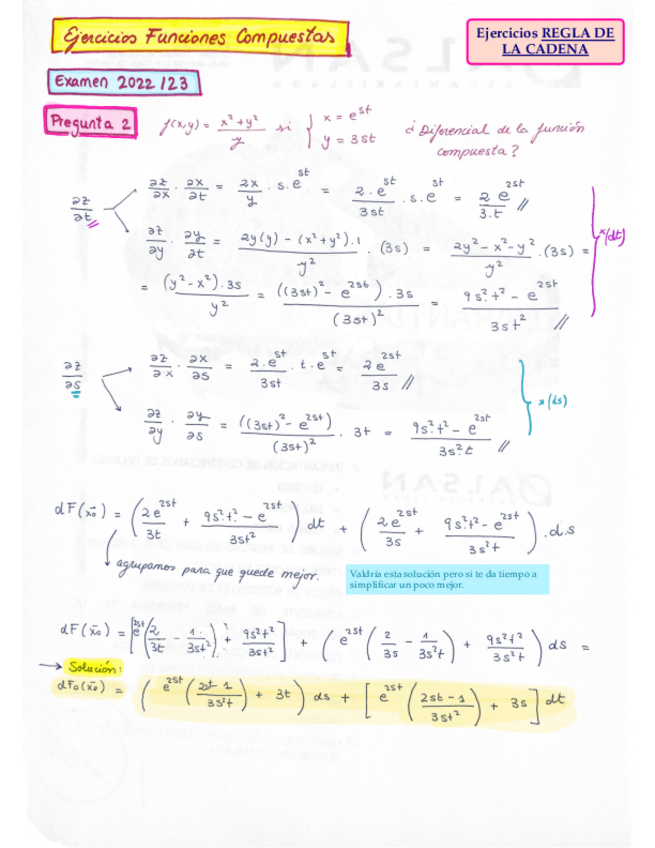 Ejercicios Funciones Compuestas
Ejercicios REGLA DE
LA CADENA
Examen 2022/23
Pregunta 2 f(x,y) = (x² + y²)/y si { x = e^{st} ¿Diferencial de la función
y = 3st compuesta?
∂z/∂t → ∂z/∂x · ∂x/∂t = 2x/y · s·e^{st} = (2·e^{st})/(3st) · s·e^{st} = (2 e^{2st})/(3·t) //
∂z/∂y · ∂y/∂t = (2y(y) - (x²+y²)·1)/y² · (3s) = (2y² - x² - y²)/y² · (3s) = x(dt)
= ((y² - x²)·3s)/y² = (((3st)² - e^{2st})·3s)/(3st)² = (9s²·t² - e^{2st})/(3st²) //
∂z/∂s → ∂z/∂x · ∂x/∂s = (2·e^{st})/(3st) · t·e^{st} = (2e^{2st})/(3s) //
x(ds)
∂z/∂y · ∂y/∂s = (((3st)² - e^{2st}))/(3st)² · 3t = (9s²·t² - e^{2st})/(3s²·t) //
dF(x̄₀) = ((2e^{2st})/(3t) + (9s²·t² - e^{2st})/(3st²)) dt + ((2e^{2st})/(3s) + (9s²t² - e^{2st})/(3s²t)) · ds
agrupamos para que quede mejor.
Valdría esta solución pero si te da tiempo a
simplificar un poco mejor.
dF(x̄₀) = [e^{2st}(2/(3t) - 1/(3st²)) + (9s²t²)/(3st²)] + (e^{2st}(2/(3s) - 1/(3s²t)) + (9s²t²)/(3s²t)) ds =
→ Solución:
dF₀(x̄₀) = (e^{2st}((2st-1)/(3s²t)) + 3t) ds + [e^{2st}((2st-1)/(3st²)) + 3s] dt